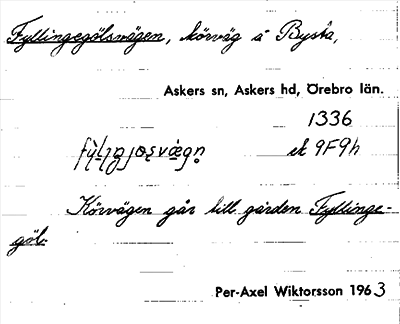 Fyllingegölsvägen, körväg å Bysta,
Askers sn, Askers hd, Örebro län.
1336
ek 9F9h
Körvägen går till gården Fyllinge-
göl.
Per-Axel Wiktorsson 1963